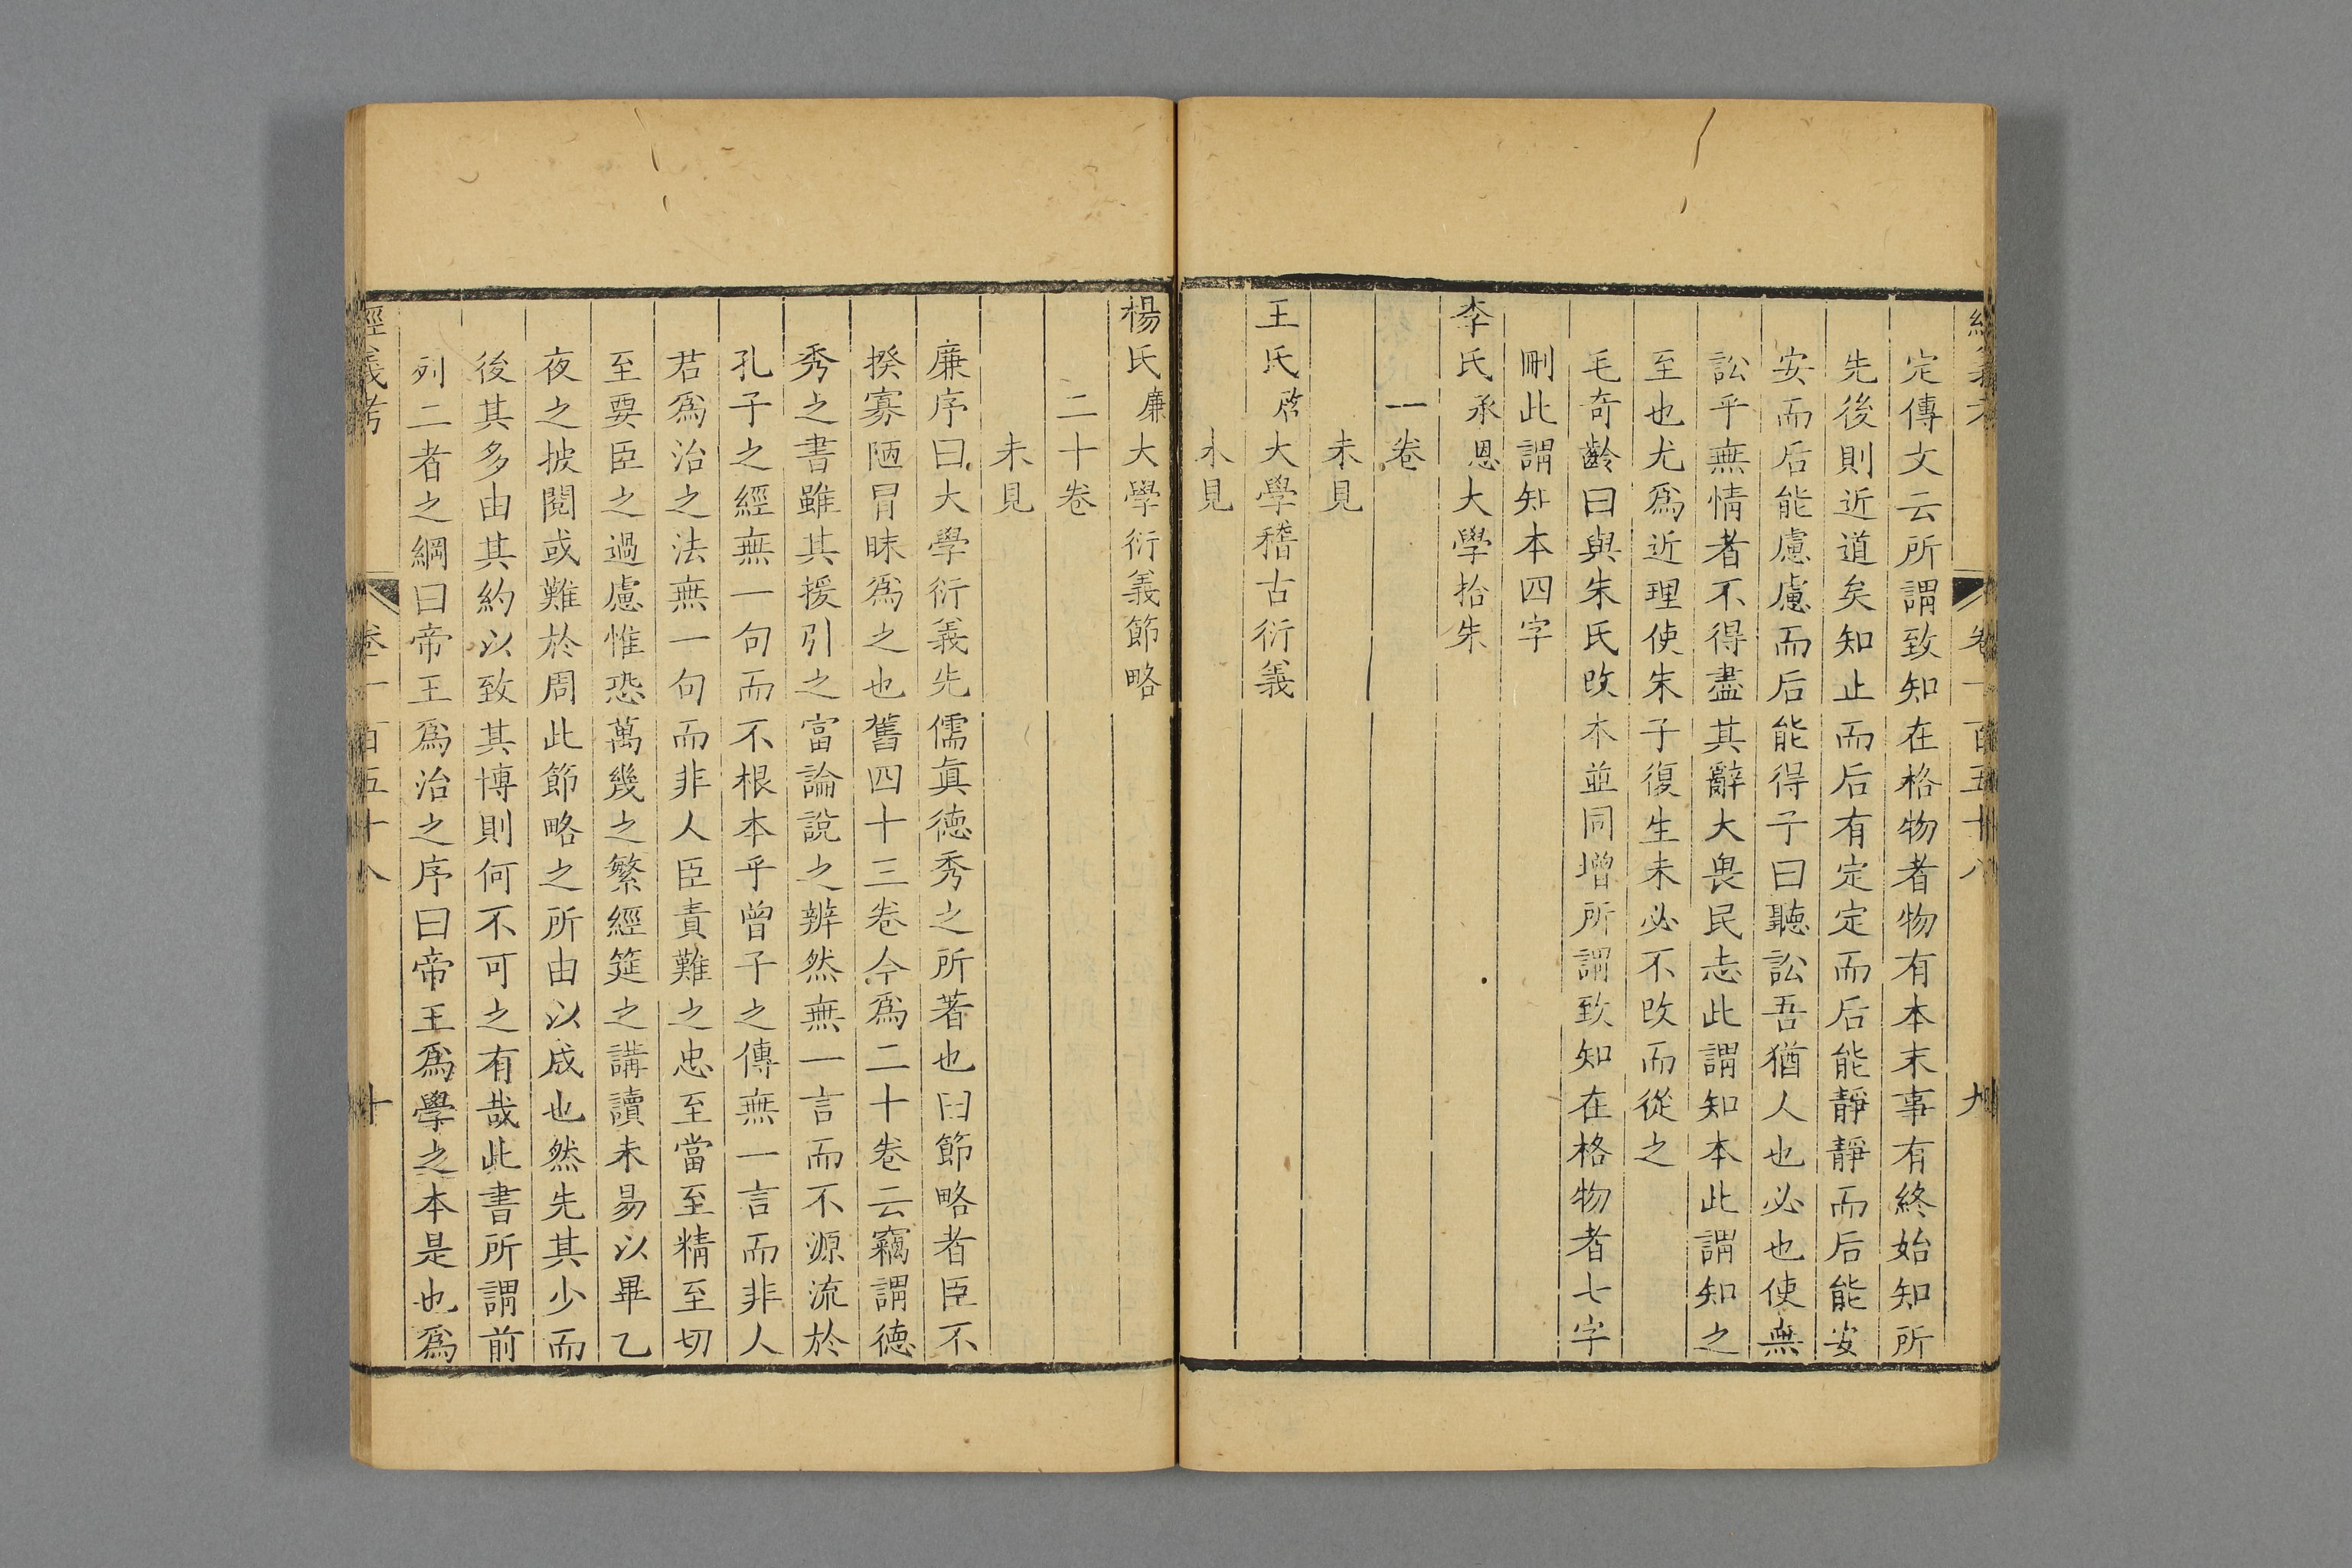 經義考 卷一百五十八 九
定傳文云所謂致知在格物者物有本末事有終始知所
先後則近道矣知止而后有定定而后能靜靜而后能安
安而后能慮慮而后能得子曰聽訟吾猶人也必也使無
訟乎無情者不得盡其辭大畏民志此謂知本此謂知之
至也尤爲近理使朱子復生未必不改而從之
毛奇齡曰與朱氏改本並同增所謂致知在格物者七字
刪此謂知本四字
李氏承恩大學拾朱
一卷
未見
王氏啓大學稽古衍義
未見
楊氏廉大學衍義節略
二十卷
未見
廉序曰大學衍義先儒眞德秀之所著也曰節略者臣不
揆寡陋冒昧爲之也舊四十三卷今爲二十卷云竊謂德
秀之書雖其援引之富論說之辨然無一言而不源流於
孔子之經無一句而不根本乎曾子之傳無一言而非人
君爲治之法無一句而非人臣責難之忠至當至精至切
至要臣之過慮惟恐萬幾之繁經筵之講讀未易以畢乙
夜之披閱或難於周此節略之所由以成也然先其少而
後其多由其約以致其博則何不可之有哉此書所謂前
列二者之綱曰帝王爲治之序曰帝王爲學之本是也爲
經義考 卷一百五十八 十